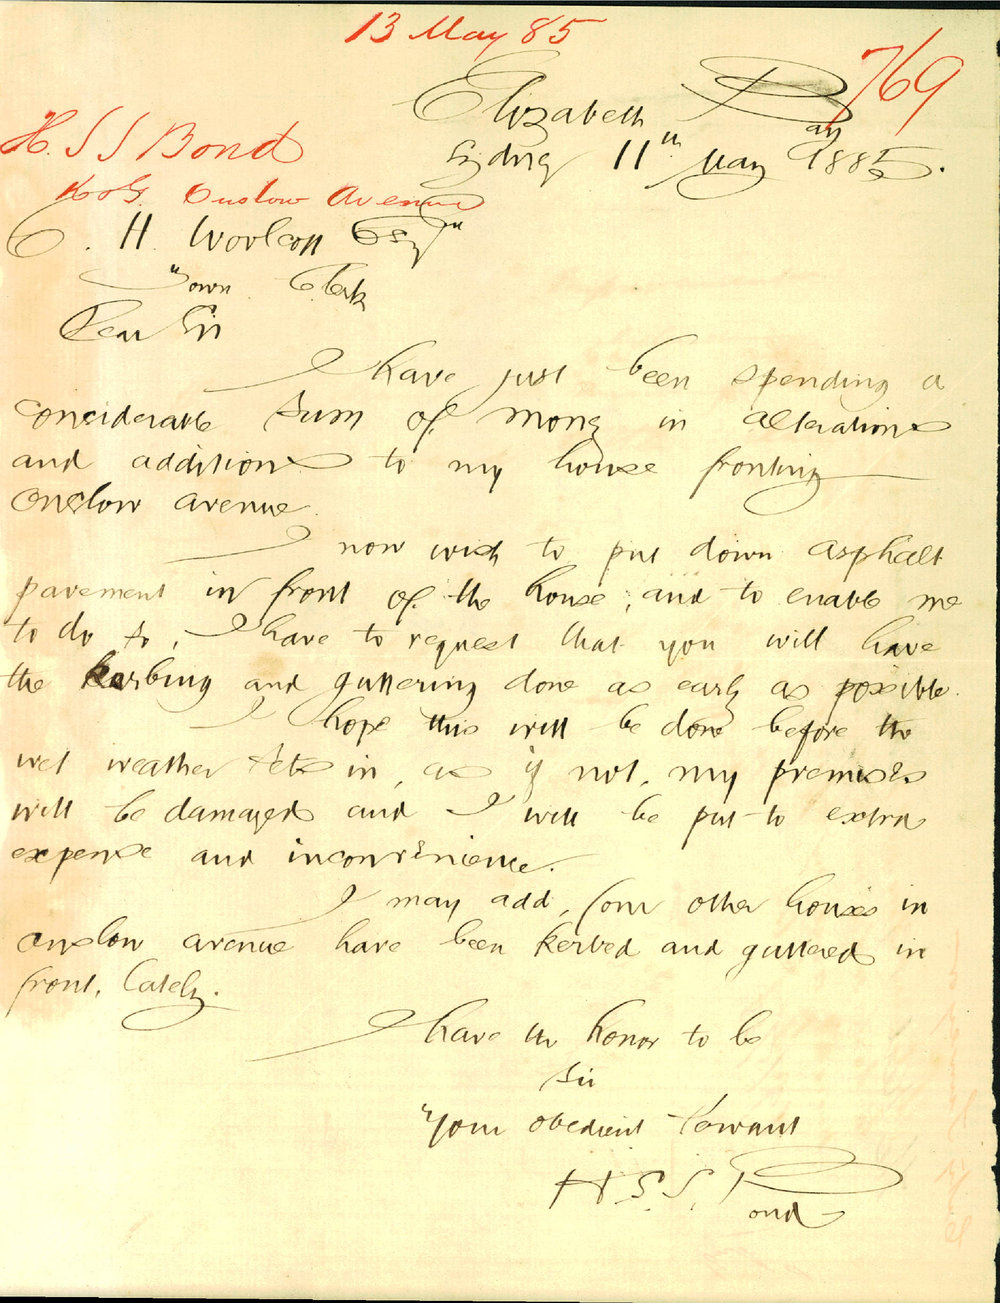 13 May 85
769
Elizabeth Bay
Sydney 11th May 1885.
H. S S Bond
K & G. Onslow Avenue
C. H. Woolcott Esqre
Town Clerk
Dear Sir
I have just been spending a
considerable sum of money in alterations
and additions to my house fronting
Onslow avenue.
I now wish to put down asphalt
pavement in front of the house; and to enable me
to do so, I have to request that you will have
the kerbing and guttering done as early as possible.
I hope this will be done before the
wet weather sets in, as if not, my premises
will be damaged and I will be put to extra
expense and inconvenience.
I may add, some other houses in
onslow avenue have been kerbed and guttered in
front, lately.
I have the honor to be
Sir
Your obedient servant
H. S. S. Bond